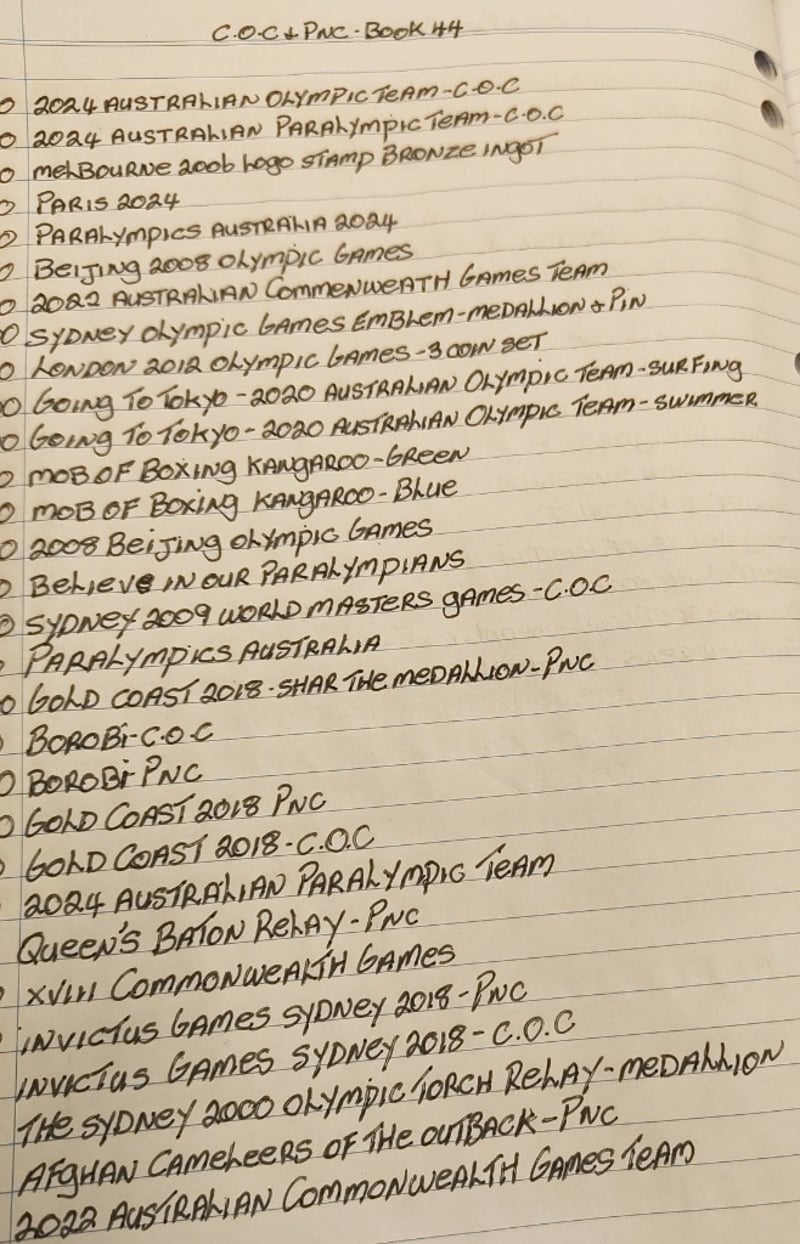 C.O.C & PNC - BOOK #4
2024 AUSTRALIAN OLYMPIC TEAM - C.O.C
2024 AUSTRALIAN PARALYMPIC TEAM - C.O.C
MELBOURNE 2006 LOGO STAMP BRONZE INGOT
PARIS 2024
PARALYMPICS AUSTRALIA 2024
BEIJING 2008 OLYMPIC GAMES
2022 AUSTRALIAN COMMENWEATH GAMES TEAM
SYDNEY OLYMPIC GAMES EMBLEM - MEDALLION & PIN
LONDON 2012 OLYMPIC GAMES - 3 COIN SET
GOING TO TOKYO - 2020 AUSTRALIAN OLYMPIC TEAM - SURFING
GOING TO TOKYO - 2020 AUSTRALIAN OLYMPIC TEAM - SWIMMER
MOB OF BOXING KANGAROO - GREEN
MOB OF BOXING KANGAROO - BLUE
2008 BEIJING OLYMPIC GAMES
BELIEVE IN OUR PARALYMPIANS
SYDNEY 2009 WORLD MASTERS GAMES - C.O.C
PARALYMPICS AUSTRALIA
GOLD COAST 2018 - SHAR THE MEDALLION - PNC
BOROBI - C.O.C
BOROBI - PNC
GOLD COAST 2018 PNC
GOLD COAST 2018 - C.O.C
2024 AUSTRALIAN PARALYMPIC TEAM
QUEEN'S BATON RELAY - PNC
XVIII COMMONWEALTH GAMES
INVICTUS GAMES SYDNEY 2018 - PNC
INVICTUS GAMES SYDNEY 2018 - C.O.C
THE SYDNEY 2000 OLYMPIC TORCH RELAY - MEDALLION
AFGHAN CAMELEERS OF THE OUTBACK - PNC
2022 AUSTRALIAN COMMONWEALTH GAMES TEAM